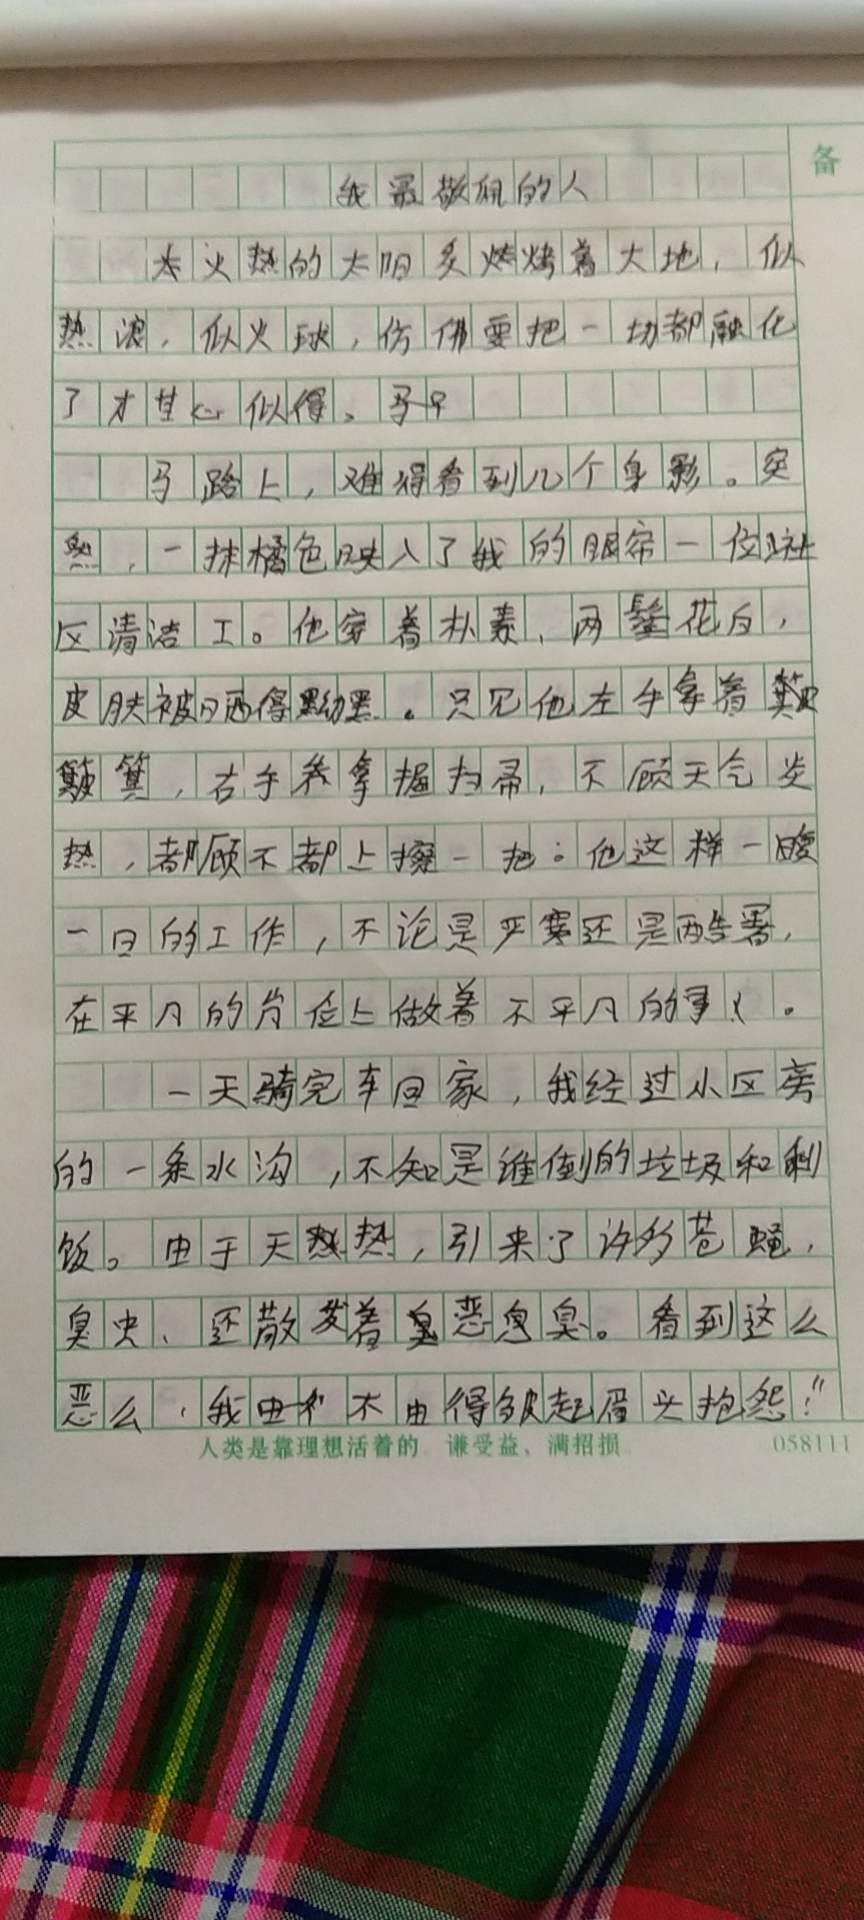 备
我最敬佩的人
火热的太阳炙烤着大地，似
热浪，似火球，仿佛要把一切都融化
了才甘心似得。马路
马路上，难得看到几个身影。突
然，一抹橘色映入了我的眼帘一位社
区清洁工。他穿着朴素，两鬓花白，
皮肤被晒得黝黑。只见他左手拿着
簸箕，右手拿握扫帚，不顾天气炎
热，都顾不都上擦一把：他这样一日复
一日的工作，不论是严寒还是酷暑，
在平凡的岗位上做着不平凡的事。
一天骑完车回家，我经过小区旁
的一条水沟，不知是谁倒的垃圾和剩
饭。由于天热，引来了许多苍蝇，
臭虫、还散发着恶臭。看到这么
恶么，我不由得皱起眉头抱怨：“
人类是靠理想活着的 谦受益、满招损
058111